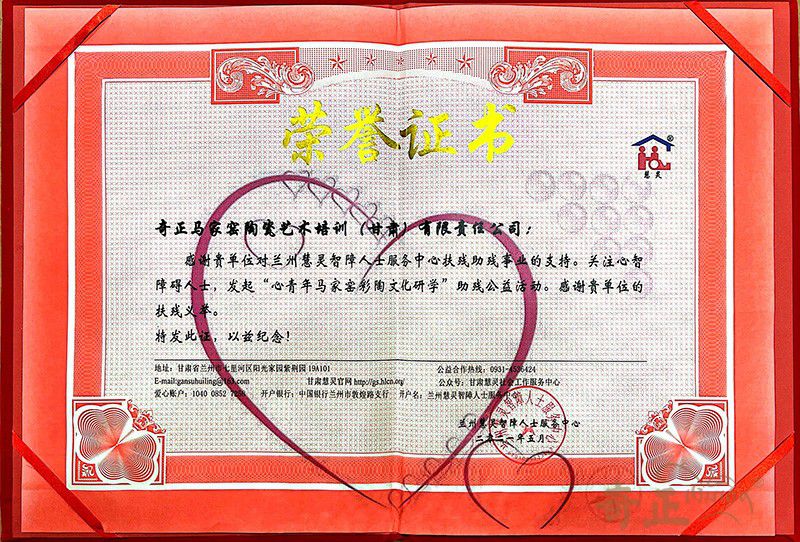 荣誉证书
慧灵
奇正马家窑陶瓷艺术培训（甘肃）有限责任公司：
感谢贵单位对兰州慧灵智障人士服务中心扶残助残事业的支持。关注心智
障碍人士，发起“心青年马家窑彩陶文化研学”助残公益活动。感谢贵单位的
扶残义举。
特发此证，以兹纪念！
地址：甘肃省兰州市七里河区阳光家园紫荆园 19A101 公益合作热线：0931-4536424
E-mail:gansuhuiling@163.com 甘肃慧灵官网 http://gs.hlcn.org/ 公众号：甘肃慧灵社会工作服务中心
爱心账户：1040 0852 开户银行：中国银行兰州市敦煌路支行 开户名：兰州慧灵智障人士服务中心
兰州慧灵智障人士服务中心
二〇二一年五月
奇正